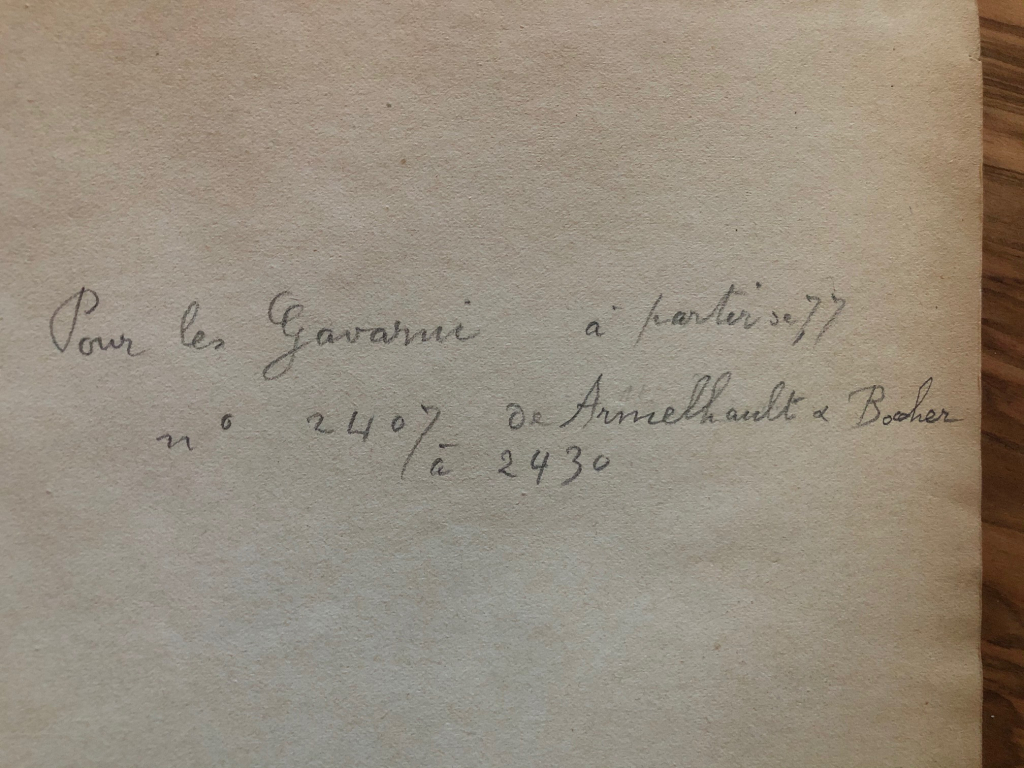 Pour les Gavarni à partir de 77
n° 2407 de Armelhault & Bocher
à 2430